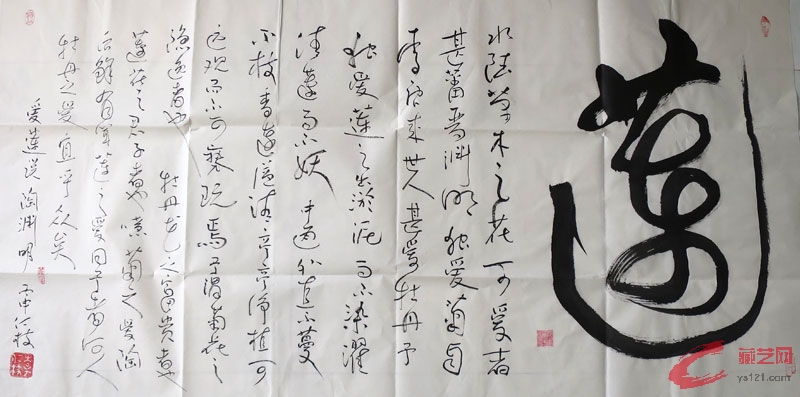 莲
水陆草木之花可爱者
甚蕃晋渊明独爱菊自
李唐来世人甚爱牡丹予
独爱莲之出淤泥而不染濯
清涟而不妖中通外直不蔓
不枝香远溢清亭亭净植可
远观而不可亵玩焉予谓菊花之
隐逸者也牡丹花之富贵者
莲花之君子者噫菊之爱陶
后鲜有闻莲之爱同予者何人
牡丹之爱宜乎众矣
爱莲说陶渊明丙申
藏艺网
ys121.com